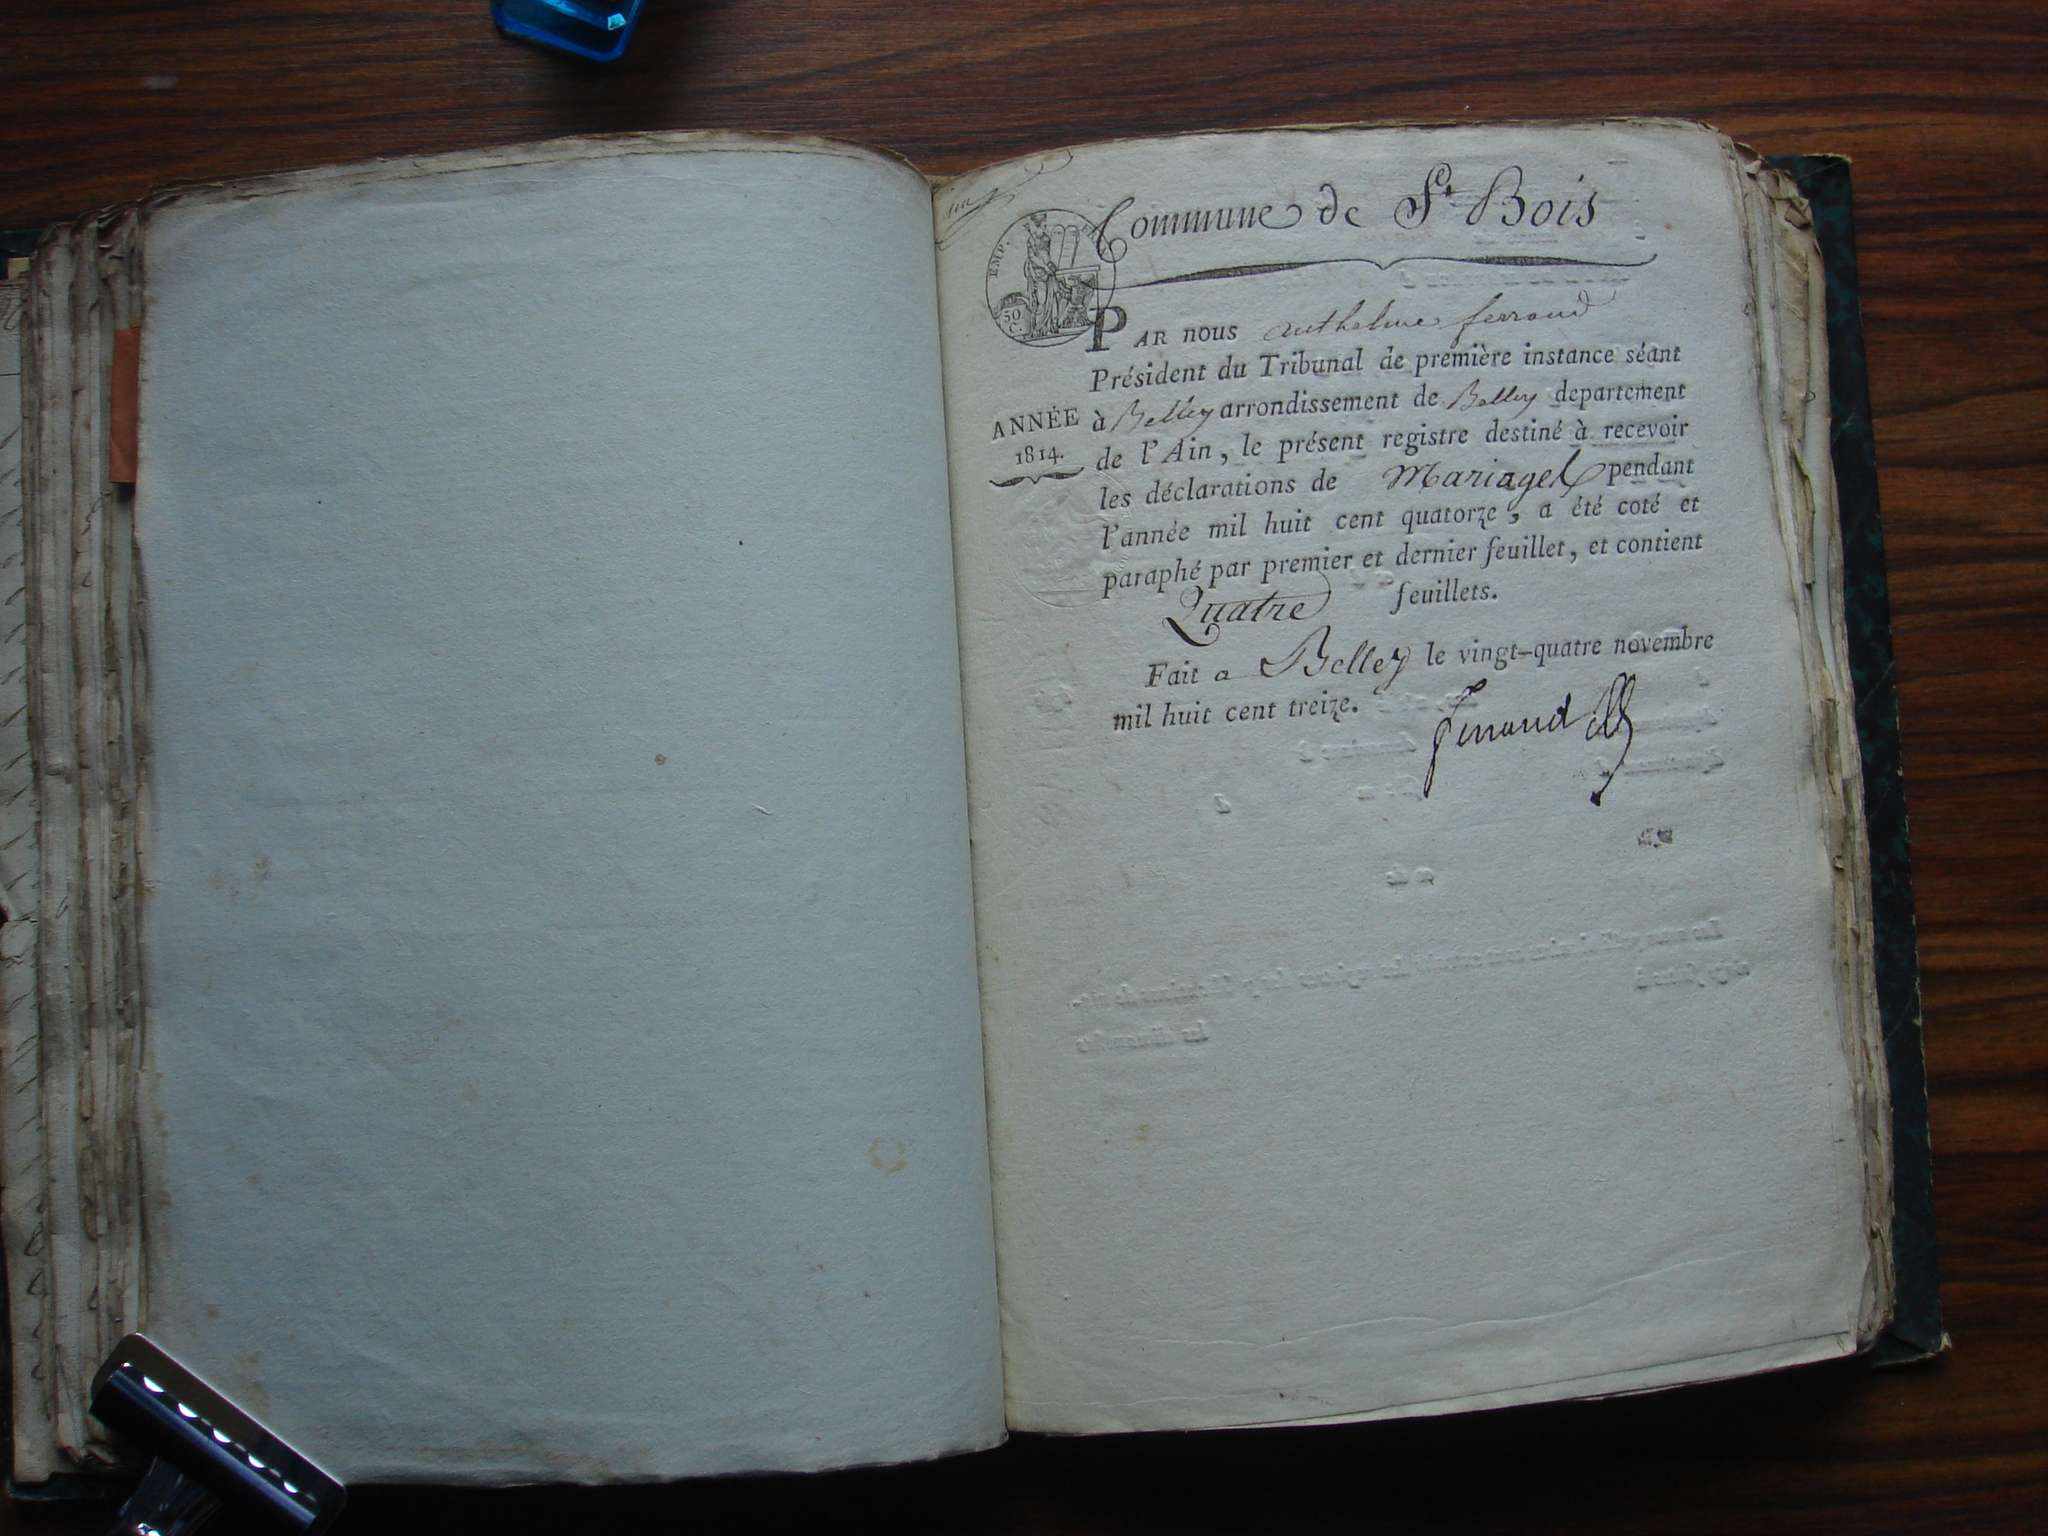 Commune de St Bois
EMP.
50
C.
PAR nous anthelme ferrand
Président du Tribunal de première instance séant
ANNÉE
1814.
à Belley arrondissement de Belley departement
de l'Ain, le présent registre destiné à recevoir
les déclarations de Mariages pendant
l'année mil huit cent quatorze, a été coté et
paraphé par premier et dernier feuillet, et contient
Quatre feuillets.
Fait a Belley le vingt-quatre novembre
mil huit cent treize.
ferrand